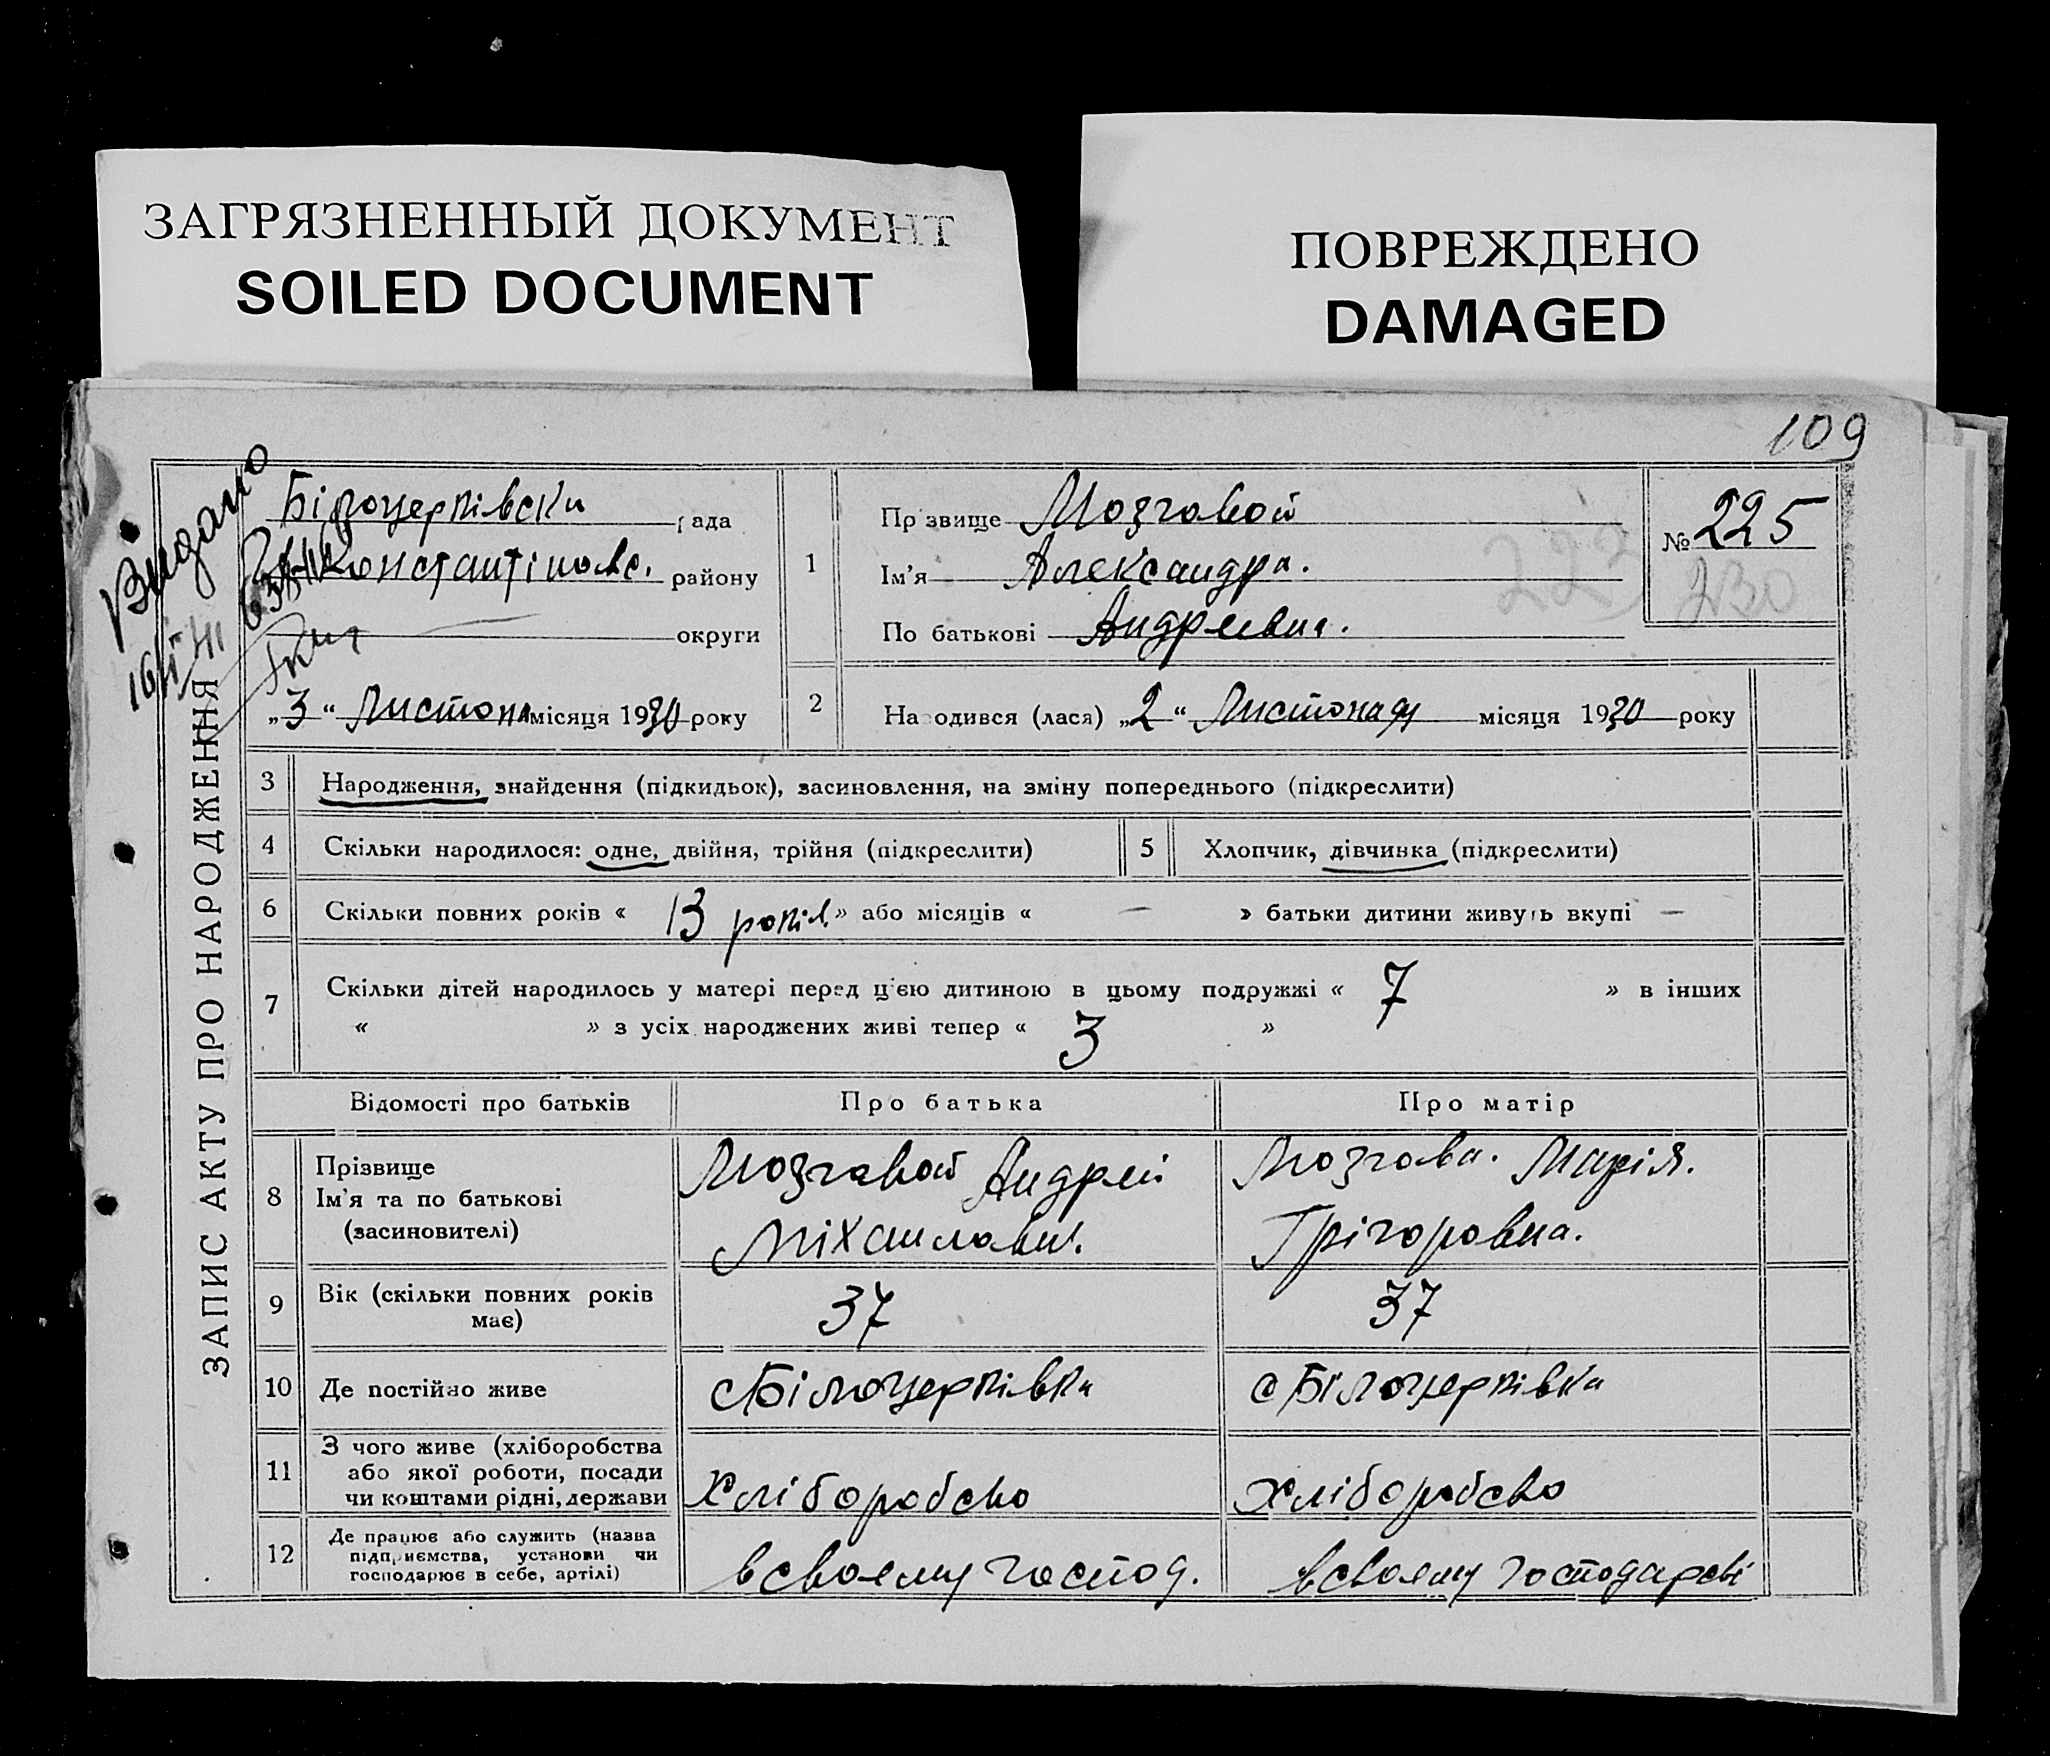 ЗАГРЯЗНЕННЫЙ ДОКУМЕНТ
SOILED DOCUMENT
ПОВРЕЖДЕНО
DAMAGED
109
Видано
ЗАПИС АКТУ ПРО НАРОДЖЕННЯ
Білоцерківска рада
Константіновс. району
округи
„3“ Листопа місяця 1930 року
1
Прізвище Мозговой
Ім'я Александра.
По батькові Андреевна.
№ 225
223 230
2
Народився (лася) „2“ Листопад місяця 1930 року
3 Народження, знайдення (підкидьок), засиновлення, на зміну попереднього (підкреслити)
4 Скільки народилося: одне, двійня, трійня (підкреслити)
5 Хлопчик, дівчинка (підкреслити)
6 Скільки повних років « 13 років » або місяців « — » батьки дитини живуть вкупі —
7 Скільки дітей народилось у матері перед ц'єю дитиною в цьому подружжі « 7 » в інших
« » з усіх народжених живі тепер « 3 »
Відомості про батьків Про батька Про матір
8 Прізвище
Ім'я та по батькові
(засиновителі)
Мозговой Андрей
Міхаилович.
Мозгова. Марія.
Грігоровна.
9 Вік (скільки повних років
має)
37
37
10 Де постійно живе
с Білоцерківка
с Білоцерківка
11 З чого живе (хліборобства
або якої роботи, посади
чи коштами рідні, держави
Хлібороб­сво
Хліборобсво
12 Де працює або служить (назва
підприємства, установи чи
господарює в себе, артілі)
в своему господ.
в своему господарсві